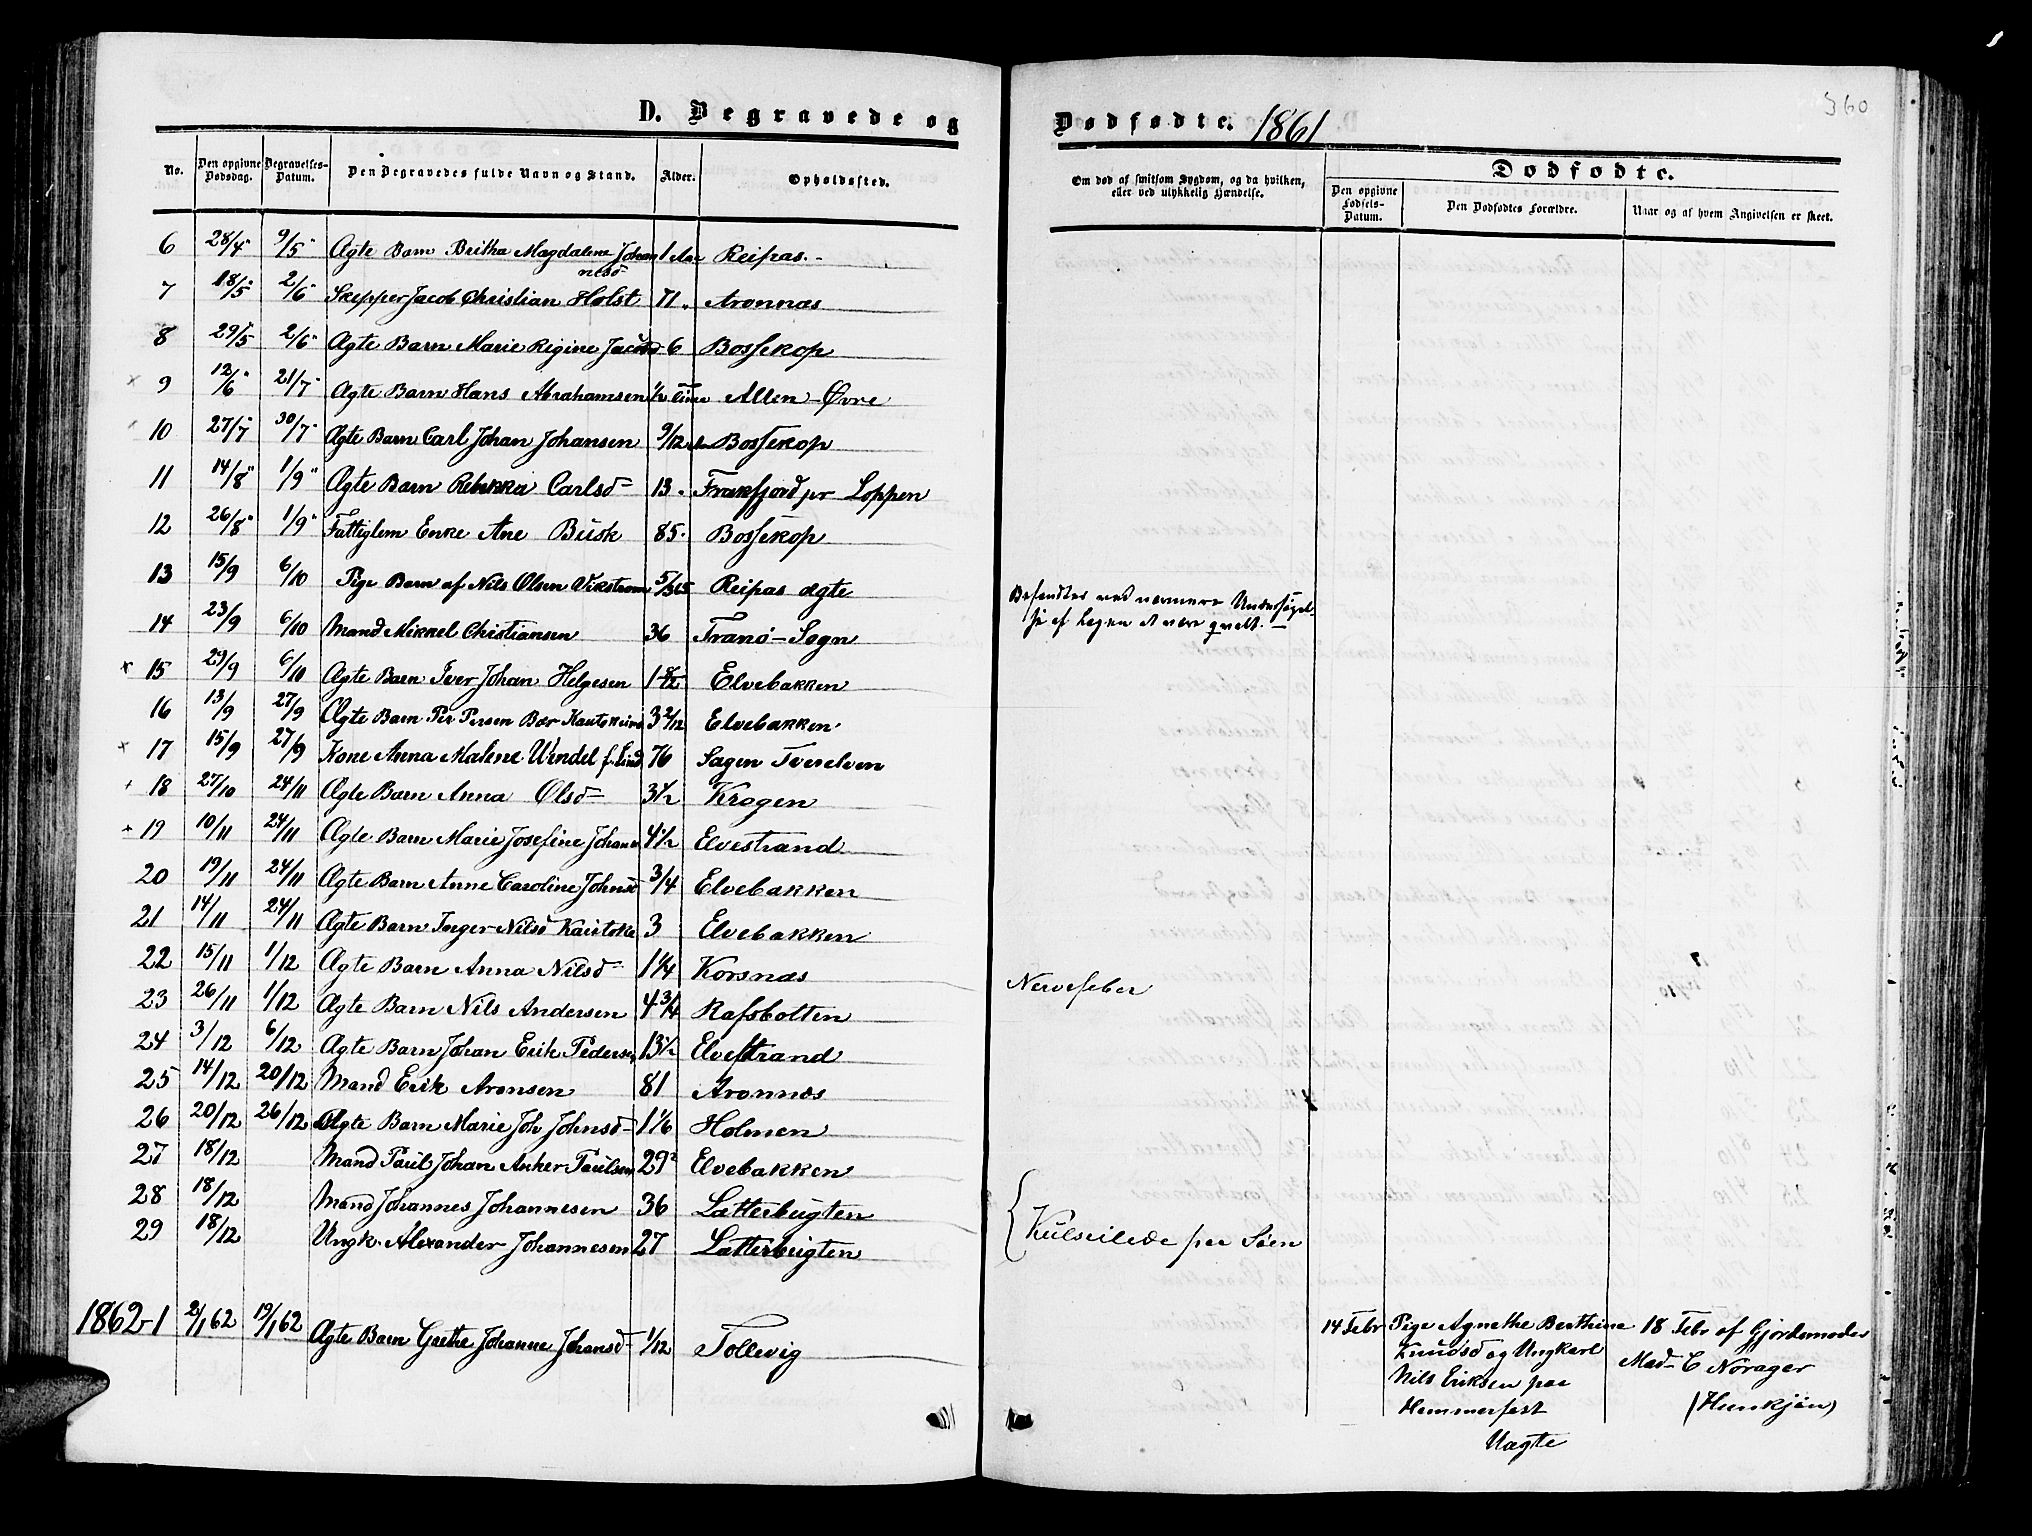 360
D. Begravede og Dødfødte. 1861
No. Den opgivne Dødsdag. Begravelses-Datum. Den Begravedes fulde Navn og Stand. Alder. Opholdssted.
Om død af smitsom Sygdom, og da hvilken, eller ved ulykkelig Hændelse.
Dødfødte.
Den opgivne Fødsels-Datum. Den Dødfødtes Forældre. Naar og af hvem Angivelsen er skeet.
6 28/4 9/5 Ægte Barn Britha Magdalene Johannesd 1 Aar Reipas.
7 18/5 2/6 Skipper Jacob Christian Holst 71 Aronnæs
8 29/5 2/6 Ægte Barn Marie Regine Jacobsd 6 Bossekop
9 12/6 21/7 Ægte Barn Hans Abrahamsen 1/2 Time Allen-Øvre
10 27/7 30/7 Ægte Barn Carl Johan Johansen 9/12 Bossekop
11 14/8 1/9 Ægte Barn Rebekka Carlsd 13 Frakfjord pr Loppen
12 26/8 1/9 Fattiglem Enke Ane Busk 85 Bossekop
13 15/9 6/10 Pige Barn af Nils Olsen Vikstrøm 5/365 Reipas ægte
Befandtes ved nærmere Undersøgelse af Lægen at være qvalt.
14 23/9 6/10 Mand Mikkel Christiansen 36 Tranø-Sogn
15 29/9 6/10 Ægte Barn Iver Johan Helgesen 1 8/12 Elvebakken
16 13/9 27/9 Ægte Barn Per Persen Bær Kautokeino 3 2/12 Elvebakken
17 15/9 27/9 Kone Anna Malene Wendel f. Lind 76 Sagen Tverelven
18 27/10 24/11 Ægte Barn Anna Olsd 3 1/2 Krogen
19 10/11 24/11 Ægte Barn Marie Josefine Johans 4 1/2 Elvestrand
20 19/11 24/11 Ægte Barn Anne Caroline Johnsd 3/4 Elvebakken
21 14/11 24/11 Ægte Barn Inger Nilsd Kautoke 3 Elvebakken
22 15/11 1/12 Ægte Barn Anna Nilsd 1 1/4 Korsnæs
Nervefeber
23 26/11 1/12 Ægte Barn Nils Andersen 4 3/4 Rafsbotten
24 3/12 6/12 Ægte Barn Johan Erik Pedersen 13 1/2 Elvestrand
25 14/12 20/12 Mand Erik Aronsen 81 Aronnæs
26 20/12 26/12 Ægte Barn Marie Joh Johnsd 1 1/6 Holmen
27 18/12 Mand Paul Johan Anker Paulsen 29 Elvebakken
28 18/12 Mand Johannes Johannesen 36 Latterbugten
29 18/12 Ungk. Alexander Johannesen 27 Latterbugten
Kulseilede paa Søen
1862-1 2/1 62 19/1 62 Ægte Barn Grethe Johanne Johansd 1/12 Tollevig
14 Febr Pige Agnethe Berthine
Knudsd og Ungkarl
Nils Eriksen paa
Hammerfest
Uægte
18 Febr af Gjordemoder
Mad- C Norager
(Hunkjøn)